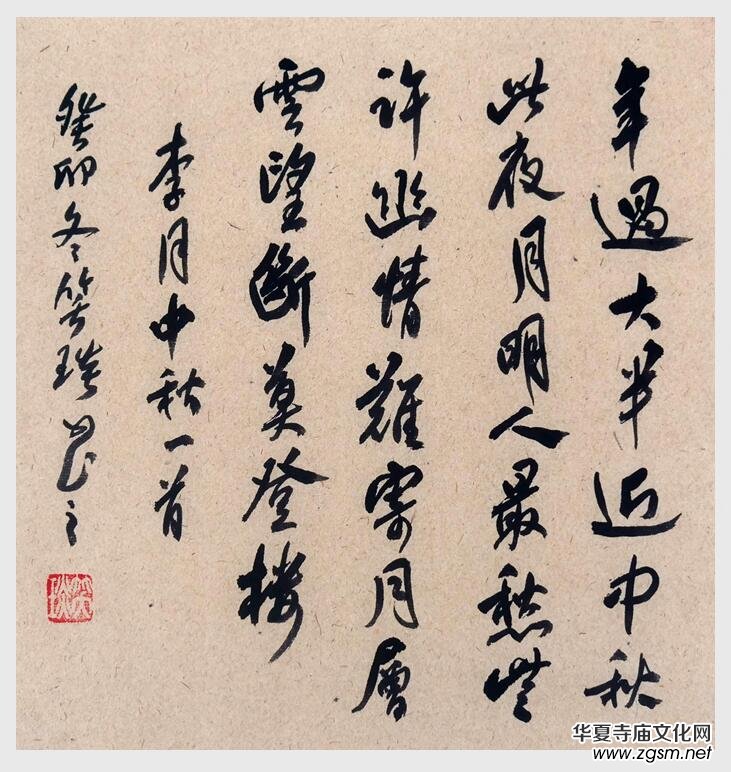 年過大半近中秋
此夜月明人最愁些
許幽情難寄月層
雲望斷莫登樓
李月中秋一首
癸卯冬笑琰書之
华夏寺庙文化网
www.zgsm.net